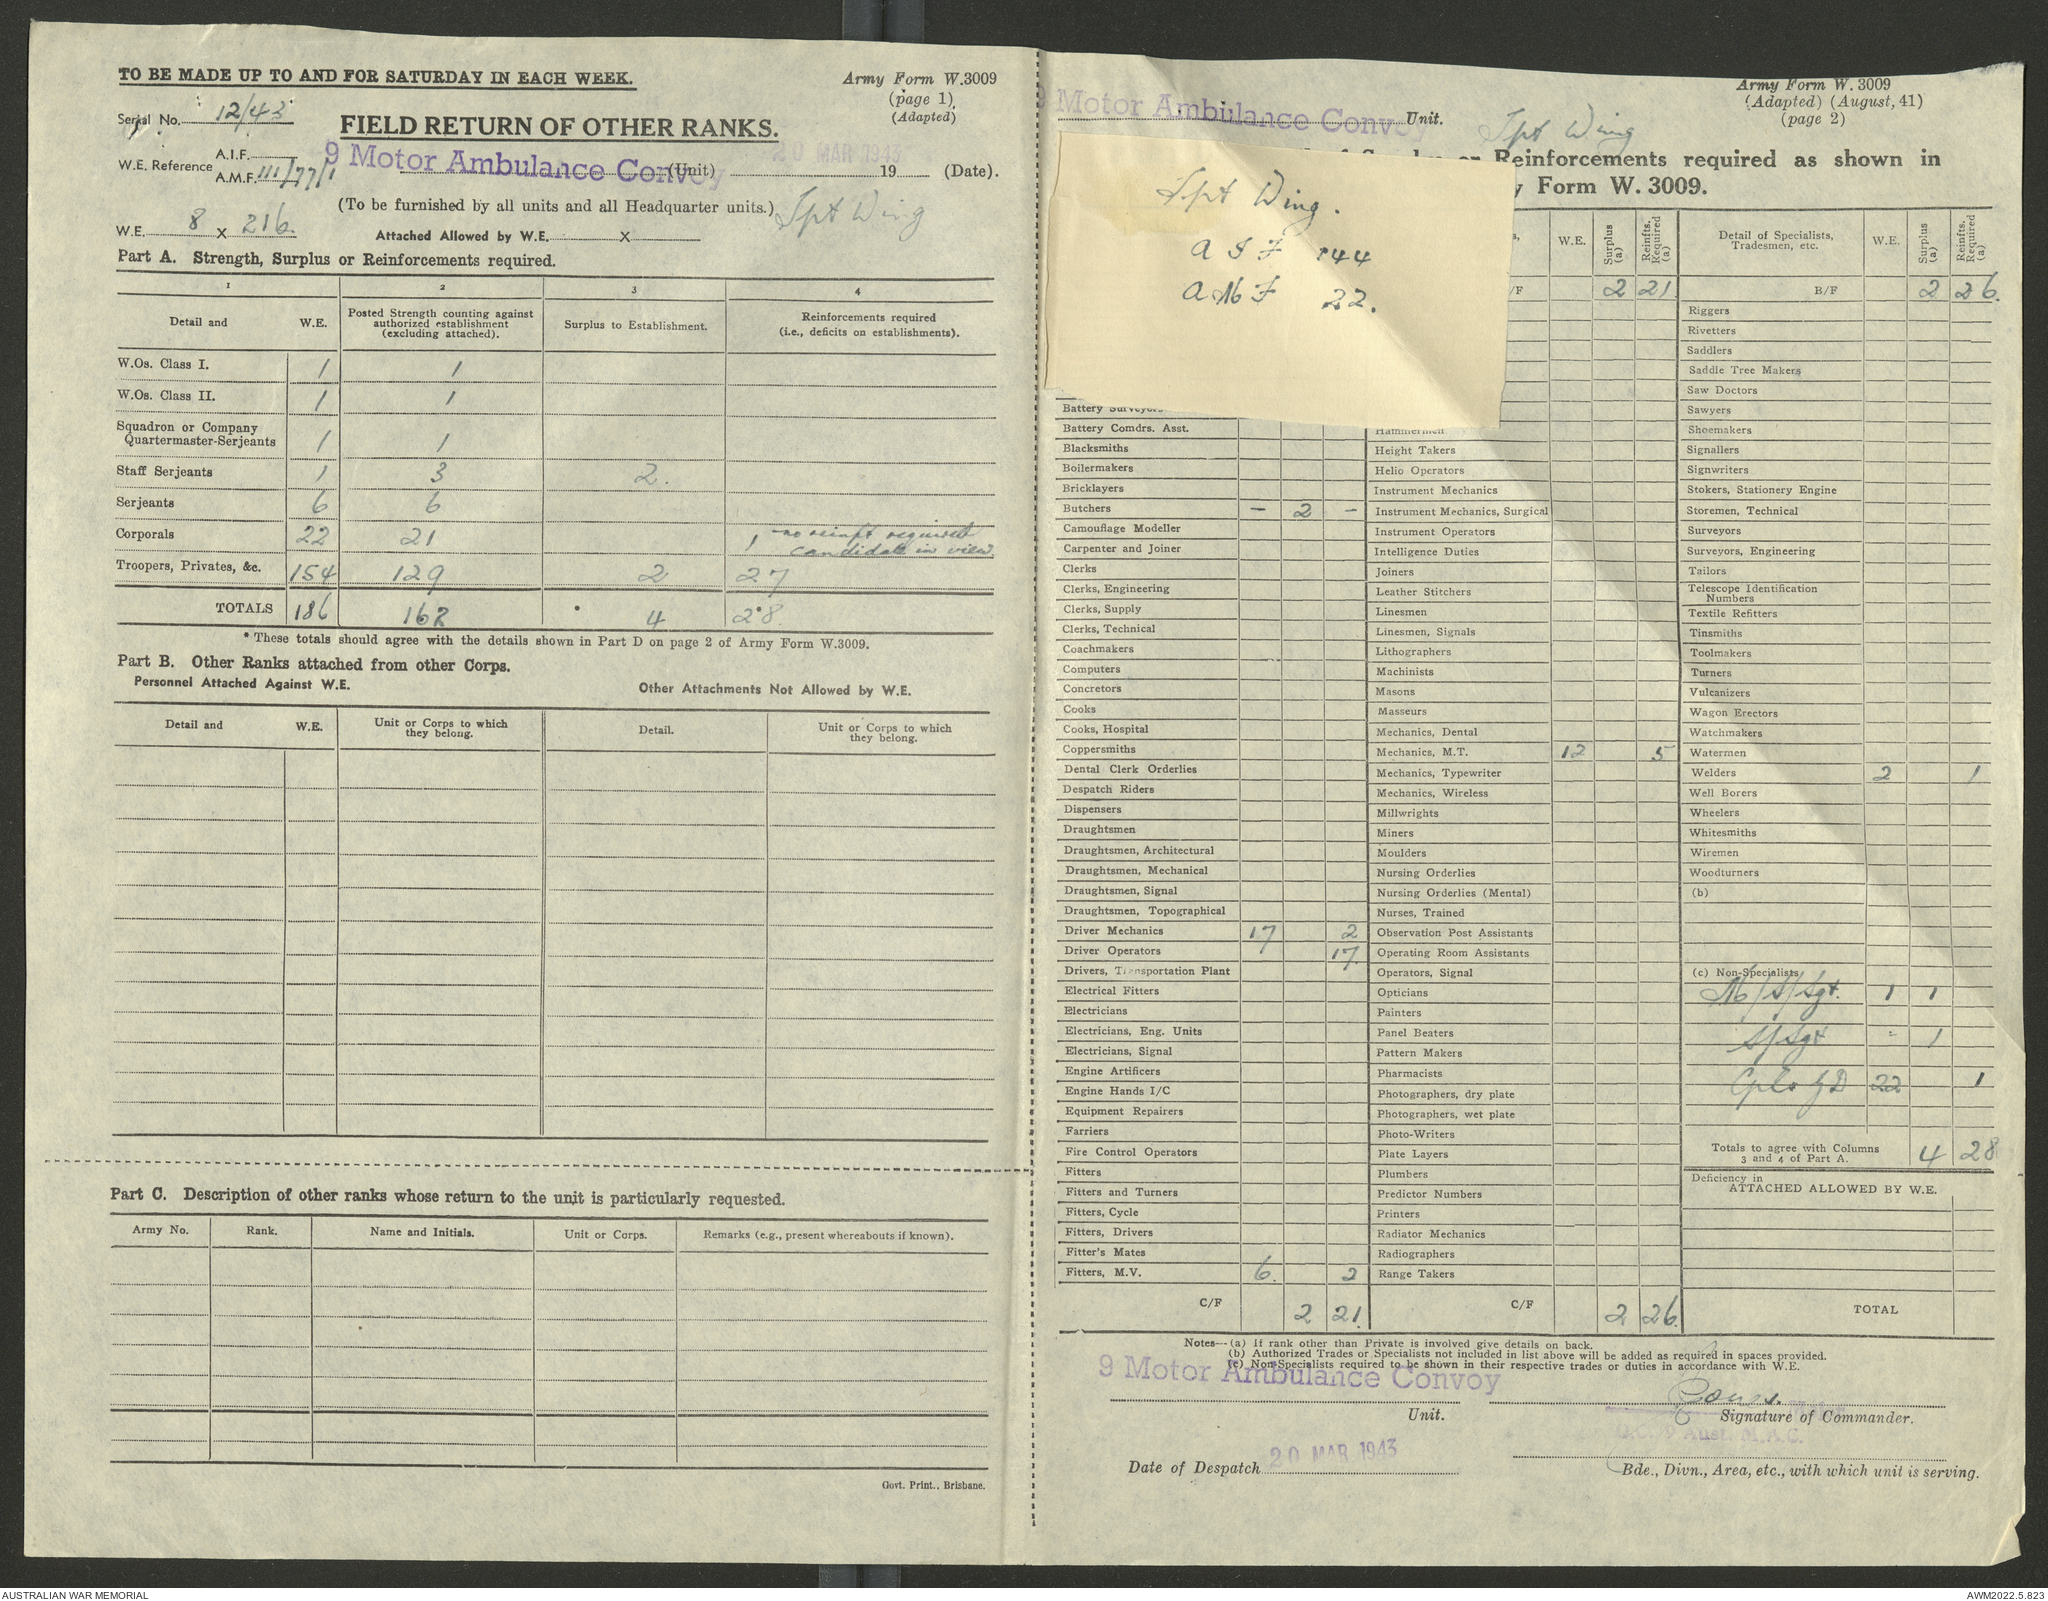 TO BE MADE UP TO AND FOR SATURDAY IN EACH WEEK.
Army Form W.3009
(page 1)
(Adapted)
Serial No. 12/43
FIELD RETURN OF OTHER RANKS.
W.E. Reference A.I.F.
A.M.F. III/77/1
9 Motor Ambulance Convoy (Unit) 20 MAR 1943 19 (Date).
(To be furnished by all units and all Headquarter units.) Tpt Wing
W.E. 8 x 216.
Attached Allowed by W.E. x
Part A. Strength, Surplus or Reinforcements required.
1 2 3 4
Detail and W.E. Posted Strength counting against authorized establishment (excluding attached). Surplus to Establishment. Reinforcements required (i.e., deficits on establishments).
W.Os. Class I. 1 1
W.Os. Class II. 1 1
Squadron or Company
Quartermaster-Serjeants 1 1
Staff Serjeants 1 3 2.
Serjeants 6 6
Corporals 22 21 1 - no reinft required
candidate in view.
Troopers, Privates, &c. 154 129 2 27
TOTALS 186 162 * 4 28*
* These totals should agree with the details shown in Part D on page 2 of Army Form W.3009.
Part B. Other Ranks attached from other Corps.
Personnel Attached Against W.E. Other Attachments Not Allowed by W.E.
Detail and W.E. Unit or Corps to which they belong. Detail. Unit or Corps to which they belong.
Part C. Description of other ranks whose return to the unit is particularly requested.
Army No. Rank. Name and Initials. Unit or Corps. Remarks (e.g., present whereabouts if known).
Govt. Print., Brisbane.
Army Form W. 3009
(Adapted) (August, 41)
(page 2)
9 Motor Ambulance Convoy Unit. Tpt Wing
or Reinforcements required as shown in
Form W. 3009.
Tpt Wing.
A I F 144
A M F 22.
W.E. Surplus (a) Reinfts. Required (a)
/F 2 21
Battery Surveyors
Battery Comdrs. Asst.
Blacksmiths
Boilermakers
Bricklayers
Butchers - 2 -
Camouflage Modeller
Carpenter and Joiner
Clerks
Clerks, Engineering
Clerks, Supply
Clerks, Technical
Coachmakers
Computers
Concretors
Cooks
Cooks, Hospital
Coppersmiths
Dental Clerk Orderlies
Despatch Riders
Dispensers
Draughtsmen
Draughtsmen, Architectural
Draughtsmen, Mechanical
Draughtsmen, Signal
Draughtsmen, Topographical
Driver Mechanics 17 2
Driver Operators 17.
Drivers, Transportation Plant
Electrical Fitters
Electricians
Electricians, Eng. Units
Electricians, Signal
Engine Artificers
Engine Hands I/C
Equipment Repairers
Farriers
Fire Control Operators
Fitters
Fitters and Turners
Fitters, Cycle
Fitters, Drivers
Fitter's Mates
Fitters, M.V. 6. 2
C/F 2 21.
Hammermen
Height Takers
Helio Operators
Instrument Mechanics
Instrument Mechanics, Surgical
Instrument Operators
Intelligence Duties
Joiners
Leather Stitchers
Linesmen
Linesmen, Signals
Lithographers
Machinists
Masons
Masseurs
Mechanics, Dental
Mechanics, M.T. 12 5
Mechanics, Typewriter
Mechanics, Wireless
Millwrights
Miners
Moulders
Nursing Orderlies
Nursing Orderlies (Mental)
Nurses, Trained
Observation Post Assistants
Operating Room Assistants
Operators, Signal
Opticians
Painters
Panel Beaters
Pattern Makers
Pharmacists
Photographers, dry plate
Photographers, wet plate
Photo-Writers
Plate Layers
Plumbers
Predictor Numbers
Printers
Radiator Mechanics
Radiographers
Range Takers
C/F 2 26.
Detail of Specialists, Tradesmen, etc. W.E. Surplus (a) Reinfts. Required (a)
B/F 2 26.
Riggers
Rivetters
Saddlers
Saddle Tree Makers
Saw Doctors
Sawyers
Shoemakers
Signallers
Signwriters
Stokers, Stationery Engine
Storemen, Technical
Surveyors
Surveyors, Engineering
Tailors
Telescope Identification
Numbers
Textile Refitters
Tinsmiths
Toolmakers
Turners
Vulcanizers
Wagon Erectors
Watchmakers
Watermen
Welders 2 1
Well Borers
Wheelers
Whitesmiths
Wiremen
Woodturners
(b)
(c) Non-Specialists
M/S/Sgt. 1 1
S/Sgt - 1
Cpls GD 22 1
Totals to agree with Columns
3 and 4 of Part A. 4 28
Deficiency in
ATTACHED ALLOWED BY W.E.
TOTAL
Notes—(a) If rank other than Private is involved give details on back.
(b) Authorized Trades or Specialists not included in list above will be added as required in spaces provided.
(c) Non-Specialists required to be shown in their respective trades or duties in accordance with W.E.
9 Motor Ambulance Convoy
Unit.
Signature of Commander.
O.C. 9 Aust. M.A.C.
Date of Despatch 20 MAR 1943
Bde., Divn., Area, etc., with which unit is serving.
AUSTRALIAN WAR MEMORIAL
AWM2022.5.823